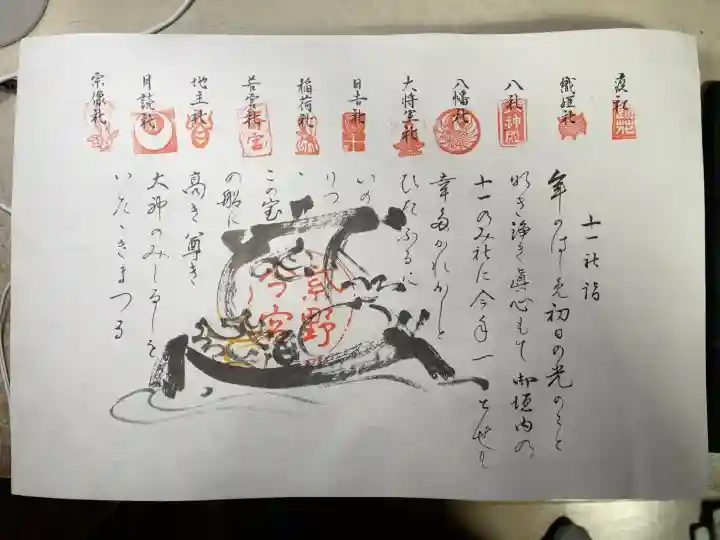 疫社
織姫社
八社
八幡社
大将軍社
日吉社
稲荷社
若宮社
地主社
月読社
宗像社
十一社詣
年のはじめ初日の光のごと
明き浄き眞心もて御垣内の
十一のみ社に今年一とせも
幸多かれかしと
ひたふるに
いの
りつ
この宝
の船に
高き尊き
大神のみしるしを
いたゝきまつる
紫野
今宮